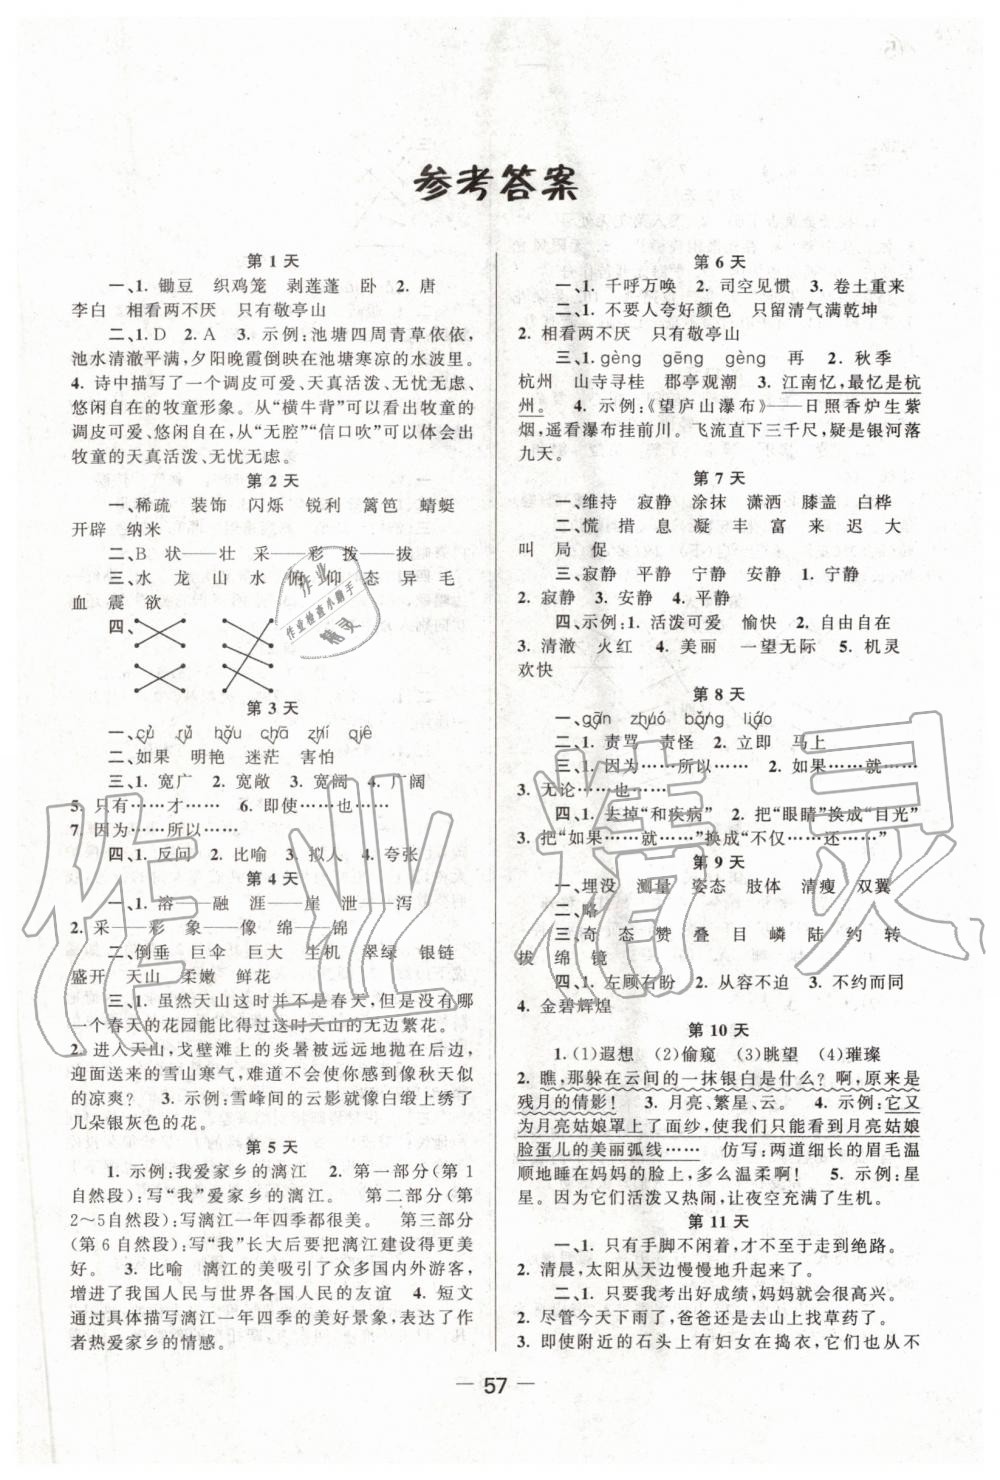 参考答案
第 1 天
一、1. 锄豆 织鸡笼 剥莲蓬 卧 2. 唐
李白 相看两不厌 只有敬亭山
二、1. D 2. A 3. 示例:池塘四周青草依依,
池水清澈平满,夕阳晚霞倒映在池塘寒凉的水波里。
4. 诗中描写了一个调皮可爱、天真活泼、无忧无虑、
悠闲自在的牧童形象。从“横牛背”可以看出牧童的
调皮可爱、悠闲自在。从“无腔”“信口吹”可以体会出
牧童的天真活泼、无忧无虑。
第 2 天
一、稀疏 装饰 闪烁 锐利 篱笆 蜻蜓
开辟 纳米
二、B 状——壮 采——彩 拨——拔
三、水 龙 山 水 俯 仰 态 异 毛
血 震 欲
四、
第 3 天
一、cù rǔ hǎu chā zhí qiè
二、如果 明艳 迷茫 害怕
三、1. 宽广 2. 宽敞 3. 宽阔 4. 广阔
5. 只有……才…… 6. 即使……也……
7. 因为……所以……
四、1. 反问 2. 比喻 3. 拟人 4. 夸张
第 4 天
一、1. 溶——融 涯——崖 泄——泻
2. 采——彩 象——像 绵——锦
二、倒垂 巨伞 巨大 生机 翠绿 银链
盛开 天山 柔嫩 鲜花
三、1. 虽然天山这时并不是春天,但是没有哪
一个春天的花园能比得过这时天山的无边繁花。
2. 进入天山,戈壁滩上的炎暑被远远地抛在后边,
迎面送来的雪山寒气,难道不会使你感到像秋天似
的凉爽? 3. 示例:雪峰间的云影就像白缎上绣了
几朵银灰色的花。
第 5 天
1. 示例:我爱家乡的漓江 2. 第一部分(第 1
自然段):写“我”爱家乡的漓江。 第二部分(第
2～5自然段):写漓江一年四季都很美。 第三部分
(第 6 自然段):写“我”长大后要把漓江建设得更美
好。 3. 比喻 漓江的美吸引了众多国内外游客,
增进了我国人民与世界各国人民的友谊 4. 短文
通过具体描写漓江一年四季的美好景象,表达了作
者热爱家乡的情感。
第 6 天
一、1. 千呼万唤 2. 司空见惯 3. 卷土重来
二、1. 不要人夸好颜色 只留清气满乾坤
2. 相看两不厌 只有敬亭山
三、1. gèng gēng gèng 再 2. 秋季
杭州 山寺寻桂 郡亭观潮 3. 江南忆,最忆是杭
州。 4. 示例:《望庐山瀑布》——日照香炉生紫
烟,遥看瀑布挂前川。飞流直下三千尺,疑是银河落
九天。
第 7 天
一、维持 寂静 涂抹 潇洒 膝盖 白桦
二、慌 措 息 凝 丰 富 来 迟 大
叫 局 促
三、寂静 平静 宁静 安静 1. 宁静
2. 寂静 3. 安静 4. 平静
四、示例:1. 活泼可爱 愉快 2. 自由自在
3. 清澈 火红 4. 美丽 一望无际 5. 机灵
欢快
第 8 天
一、gān zhuó bǎng liáo
二、1. 责骂 责怪 2. 立即 马上
三、1. 因为……所以…… 2. 如果……就……
3. 无论……也……
四、1. 去掉“和疾病” 2. 把“眼睛”换成“目光”
3. 把“如果……就……”换成“不仅……还……”
第 9 天
一、埋没 测量 姿态 肢体 清瘦 双翼
二、略
三、奇 态 赞 叠 目 嶙 陆 约 转
拔 绵 镜
四、1. 左顾右盼 2. 从容不迫 3. 不约而同
4. 金碧辉煌
第 10 天
1. (1)遐想 (2)偷窥 (3)眺望 (4)璀璨
2. 瞧,那躲在云间的一抹银白是什么? 啊,原来是
残月的倩影! 3. 月亮、繁星、云。 4. 示例:它又
为月亮姑娘罩上了面纱,使我们只能看到月亮姑娘
脸蛋儿的美丽弧线…… 仿写:两道细长的眉毛温
顺地睡在妈妈的脸上,多么温柔啊! 5. 示例:星
星。因为它们活泼又热闹,让夜空充满了生机。
第 11 天
一、1. 只有手脚不闲着,才不至于走到绝路。
2. 清晨,太阳从天边慢慢地升起。
二、1. 只要我考出好成绩,妈妈就会很高兴。
2. 尽管今天下雨了,爸爸还是去山上找草药了。
3. 即使附近的石头上有妇女在捣衣,它们也从不
— 57 —
作业
作业检查小助手
精灵
作业精灵